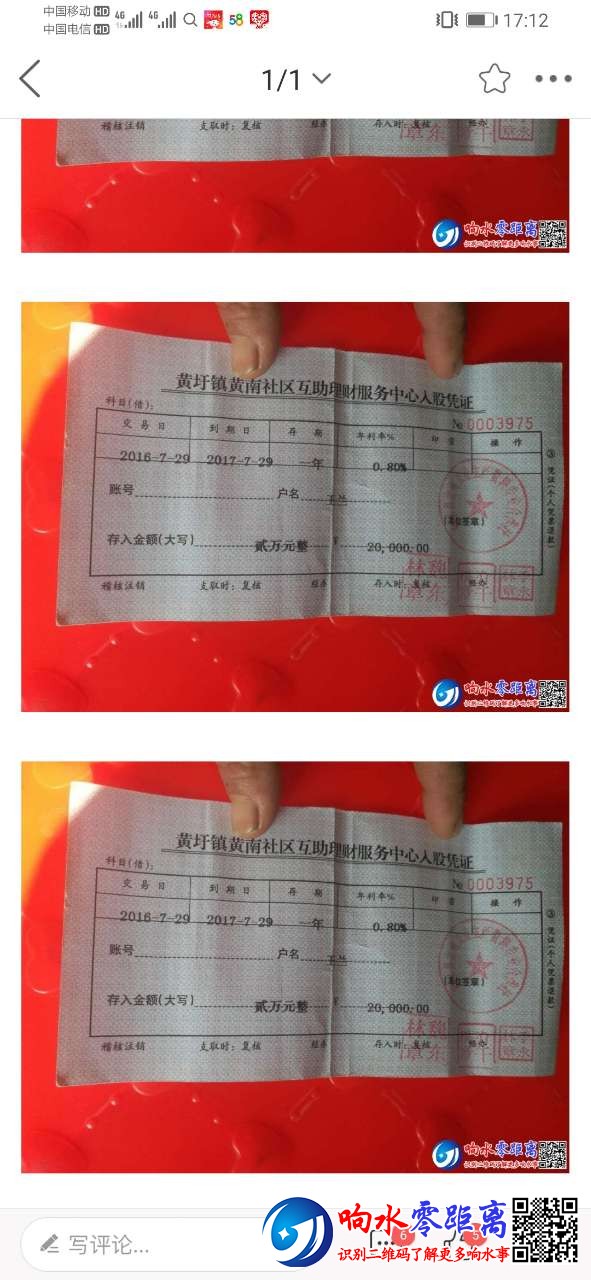 中国移动 HD 4G 4G 58 17:12
中国电信 HD
1/1
稽核注销 支取时：复核 经办 存入时：复核 经办
响水零距离
识别二维码了解更多响水事
黄圩镇黄南社区互助理财服务中心入股凭证
科目(借)：
№0003975
交易日 到期日 存期 年利率% 印密 操作
2016-7-29 2017-7-29 一年 0.80%
账号 户名 王兰
(单位签章)
存入金额(大写) 贰万元整 ¥ 20,000.00
③ 凭证(个人凭票退款)
稽核注销 支取时：复核 经办 存入时：复核 经办
响水零距离
识别二维码了解更多响水事
黄圩镇黄南社区互助理财服务中心入股凭证
科目(借)：
№0003975
交易日 到期日 存期 年利率% 印密 操作
2016-7-29 2017-7-29 一年 0.80%
账号 户名 王兰
(单位签章)
存入金额(大写) 贰万元整 ¥ 20,000.00
③ 凭证(个人凭票退款)
稽核注销 支取时：复核 经办 存入时：复核 经办
响水零距离
识别二维码了解更多响水事
写评论...
6
5
响水零距离
识别二维码了解更多响水事